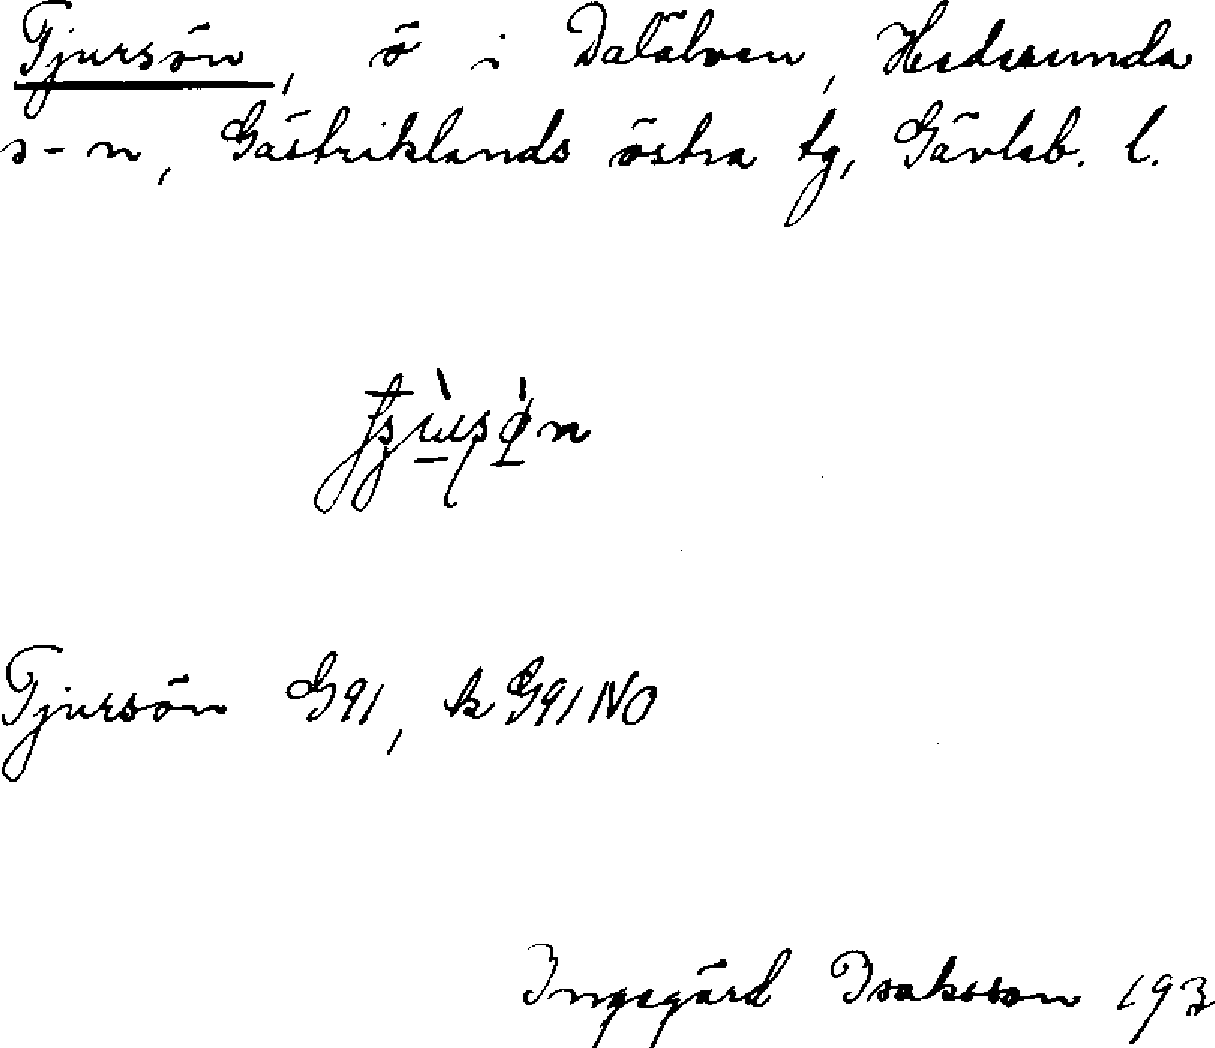 Tjursön, ö i Dalälven, Hedesunda
s-n, Gästriklands östra tg, Gävleb. l.
Tjursön G91, k G91 NO
Ingegärd Isaksson 193